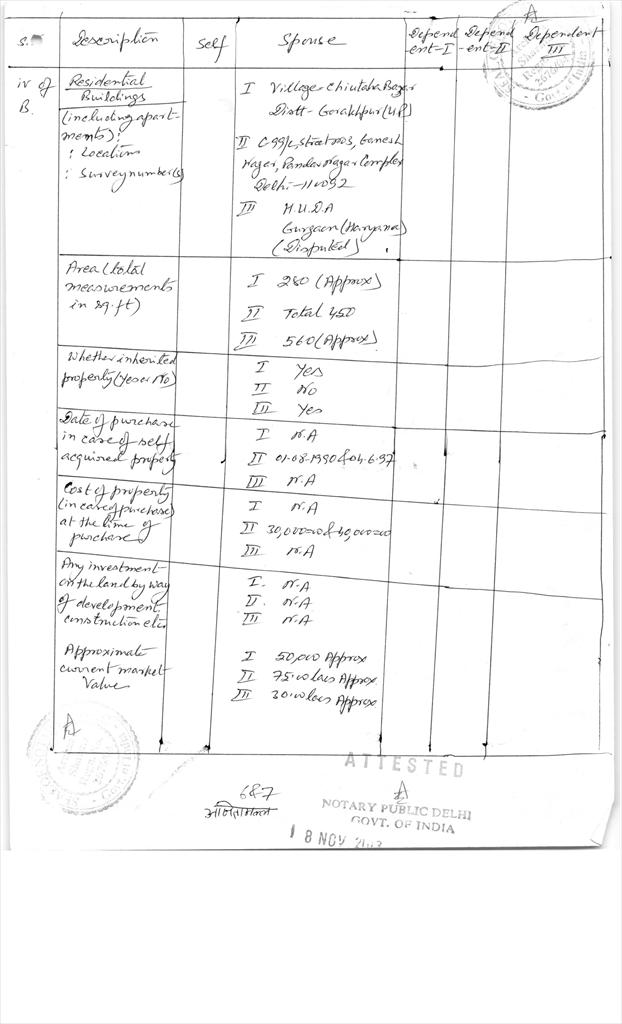 S. Description Self Spouse Depend ent-I Depend -ent-II Dependent III
iv of B. Residential
Buildings
(including apart-
ments):
: Location
: Survey number(s)
I Village Chiutaha Bazar
Distt- Gorakhpur (U.P)
II C 99/2, Street no 3, Ganesh
Nagar, Pandav Nagar Complex
Delhi-110092
III H.U.D.A
Gurgaon (Haryana)
(Disputed)
Area (total
measurements
in sq.ft)
I 280 (Approx)
II Total 450
III 560 (Approx)
Whether inherited
property (Yes or No)
I Yes
II No
III Yes
Date of purchase
in case of self
acquired property
I N.A
II 01-08-1990 & 04-6-97
III N.A
Cost of property
(in case of purchase)
at the time of
purchase
I N.A
II 30,000=00 & 40,000=00
III N.A
Any investment
on the land by way
of development,
construction etc.
I. N.A
II. N.A
III N.A
Approximate
current market
Value
I 50,000 Approx
II 75.00 lacs Approx
III 30.00 lacs Approx
ATTESTED
687
NOTARY PUBLIC DELHI
GOVT. OF INDIA
18 NOV